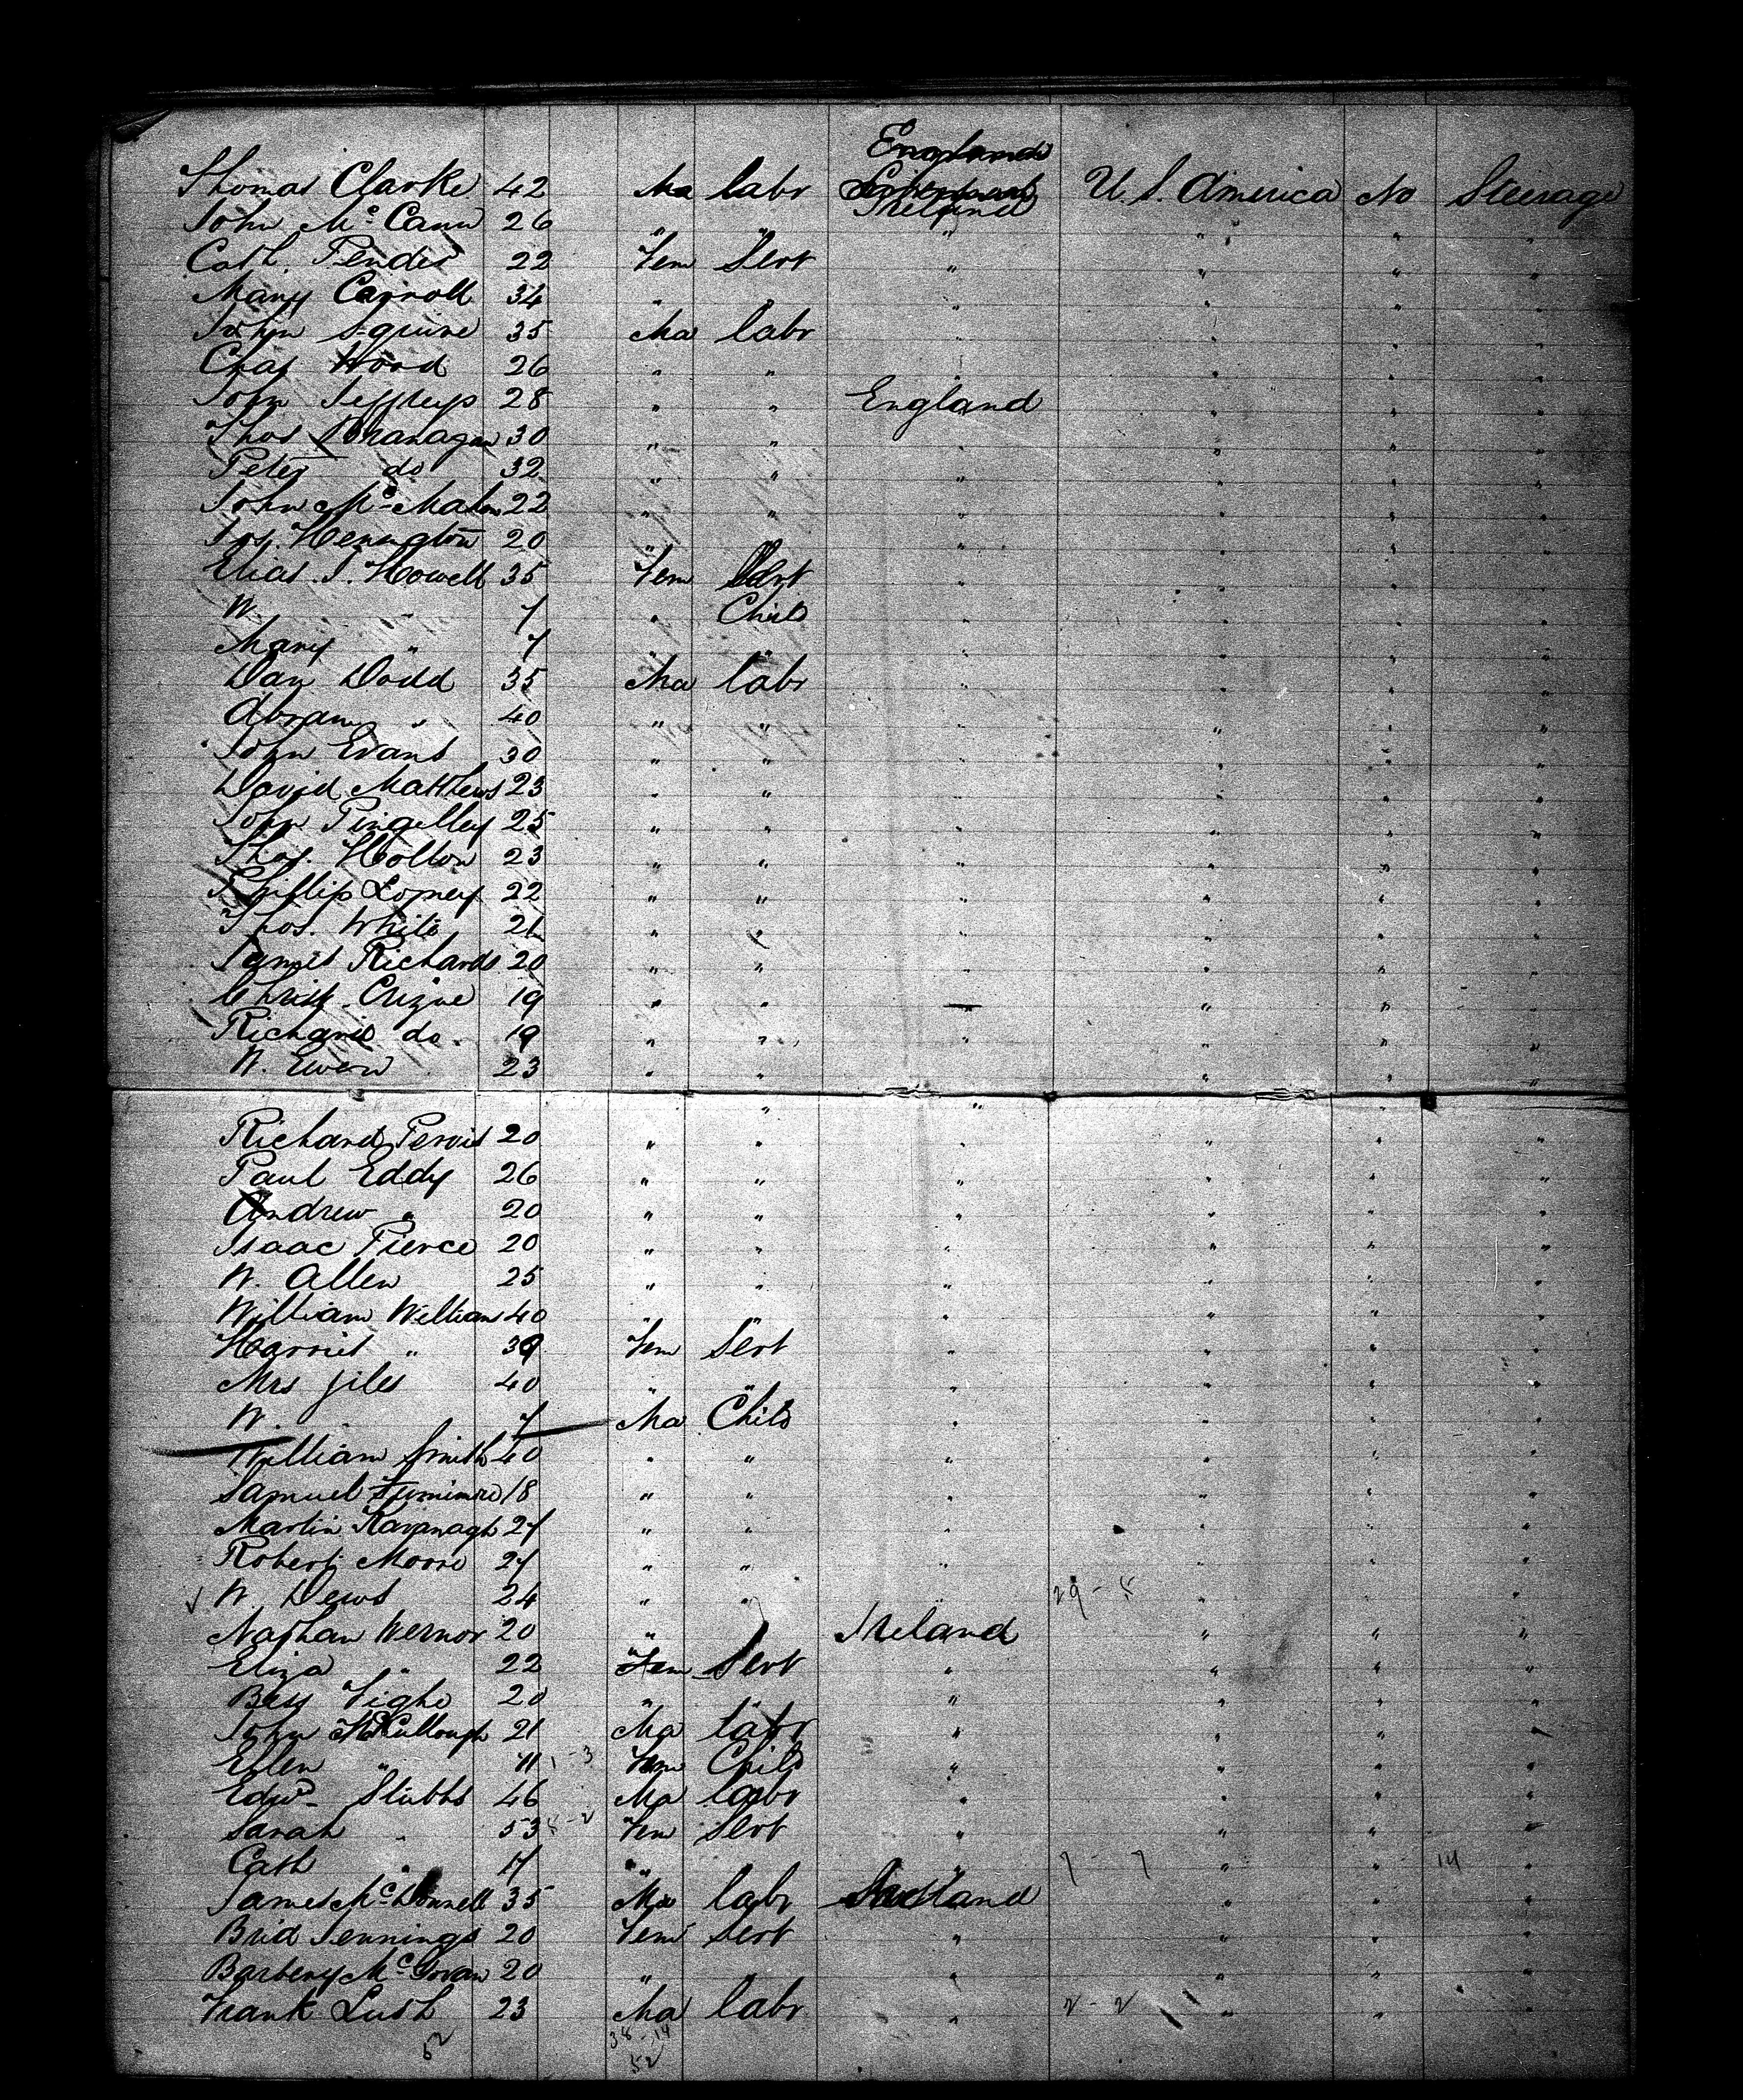 England
Thomas Clarke 42 Ma labr Ireland U. S. America No Steerage
John McCann 26 " " " " " "
Cath. Pender 22 Fem Sert " " " "
Mary Carroll 34 " " " " " "
John Squire 35 Ma labr " " " "
Chas Hood 26 " " " " " "
John Jeffreys 28 " " England " " "
Thos 30 " " " " " "
Peter do 32 " " " " " "
John McMahon 22 " " " " " "
Jos. Henington 20 " " " " " "
Elias. J. Howell 35 Fem Sert " " " "
W. " 7 " Child " " " "
Mary " 7 " " " " " "
Dan Dodd 35 Ma labr " " " "
Abram " 40 " " " " " "
John Evans 30 " " " " " "
David Matthews 23 " " " " " "
John Pingelley 25 " " " " " "
Thos. Holton 23 " " " " " "
Phillip Lopney 22 " " " " " "
Thos. White 21 " " " " " "
James Richards 20 " " " " " "
Christ. 19 " " " " " "
Richard do. 19 " " " " " "
W. Ewen 23 " " " " " "
Richard Pervis 20 " " " " " "
Paul Eddy 26 " " " " " "
Andrew " 20 " " " " " "
Isaac Pierce 20 " " " " " "
W. Allen 25 " " " " " "
William William 40 " " " " " "
Harriet " 39 Fem Sert " " " "
Mrs Jiles 40 " " " " " "
W. 7 Ma Child " " " "
William Smith 40 " " " " " "
Samuel 18 " " " " " "
Martin Kavanagh 27 " " " " " "
Robert Moore 27 " " " " " "
W. Dews 24 " " " 29 - 5 " " "
Nathan Vernor 20 " " Ireland " " "
Eliza " 22 Fem Sert " " " "
Bess Tighe 20 " " " " " "
John McCullough 21 Ma labr " " " "
Ellen " 11 1-3 Fem Child " " " "
Edwd Stubbs 46 Ma labr " " " "
Sarah " 53 Fem Sert " " " "
Cath " 17 " " " 7 - 7 " " 14 "
James McDonnell 35 Ma labr Scotland " " "
Brid Jennings 20 Fem Sert " " " "
Barbery McGovan 20 " " " " " "
Frank Lush 23 Ma labr " 2 - 2 " " "
52 38-14
52